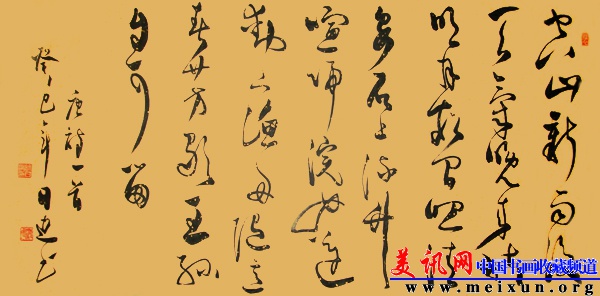 空山新雨後
天氣晚來秋
明月松間照清
泉石上流竹
喧歸浣女蓮
動下漁舟隨意
春芳歇王孫
自可留
唐詩一首
癸巳年日建书
美讯网 中国书画收藏频道
www.meixun.org